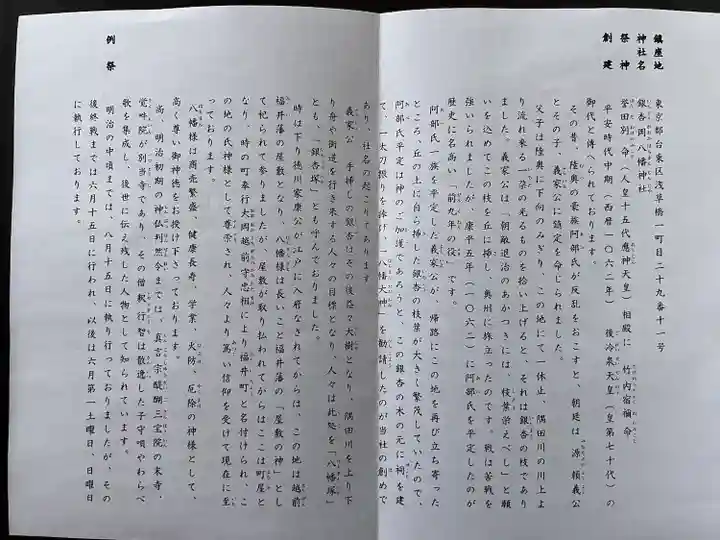 鎮座地　東京都台東区浅草橋一町目二十九番十一号
神社名　銀杏岡八幡神社
祭神　誉田別命（人皇十五代應神天皇）相殿に　竹内宿禰命
創建　平安時代中期（西暦一〇六二年）　後冷泉天皇（皇第七十代）の
御代と傳へられております。
その昔、陸奥の豪族阿部氏が反乱をおこすと、朝廷は　源　頼義公
とその子、義家公に鎮定を命じられました。
父子は陸奥に下向のみぎり、この地にて一休止、隅田川の川上よ
り流れ来る一朶の光るものを拾い上げると、それは銀杏の枝であり
ました。義家公は「朝敵退治のあかつきには、枝葉栄えべし」と願
いを込めてこの枝を丘に挿し、奥州に旅立ったのです。戦は苦戦を
強いられましたが、康平五年（一〇六二）に阿部氏を平定したのが
歴史に名高い「前九年の役」です。
阿部氏一族を平定した義家公が、帰路にこの地を再び立ち寄った
ところ、丘の上に自ら挿した銀杏の枝葉が大きく繁茂していたので、
阿部氏平定は神のご加護であろうと、この銀杏の木の元に祠を建
て、一太刀振りを捧げ「八幡大神」を勧請したのが当社の創めで
あり、社名の起こりであります
義家公　手挿しの銀杏はその後益々大樹となり、隅田川を上り下
り舟や街道を行き来する人々の目標となり、人々は此処を「八幡塚」
とも、「銀杏塚」とも呼んでおりました。
時は下り徳川家康公が江戸に入府なされてからは、この地は越前
福井藩の屋敷となり、八幡様は長いこと福井藩の「屋敷の神」とし
て祀られて参りましたが、屋敷が取り払われてからはここは町屋と
なり、時の町奉行大岡越前守忠相により福井町と名付けられ、こ
の地の氏神様として尊崇され、人々より篤い信仰を受けて現在に至
っております。
八幡様は商売繁盛、健康長寿、学業、火防、厄除の神様として、
高く尊い御神徳をお授け下さっております。
尚、明治初期の神仏判然令までは、真言宗醍醐三宝院の末寺、
覚吽院が別当寺であり、その僧釈行智は散逸した子守唄やわらべ
歌を集成し、後世に伝え残した人物として知られています。
例祭　明治の中頃までは、八月十五日に執り行っておりましたが、その
後終戦までは六月十五日に行われ、以後は六月第一土曜日、日曜日
に執行しております。